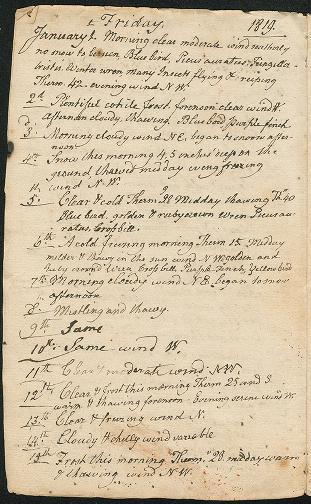 1 Friday. 1819.
January 1. Morning clear moderate wind westerly
no snow to be seen, Blue bird, Picus auratus, Fringilla
tristis, Winter wren, many Insects flying & creeping
Therm. 42. evening wind N W
2d. Plentiful white frost forenoon clear wind W.
afternoon cloudy, thawing. Blue bird, Purple finch
3d. Morning cloudy wind N E. began to snow after-
noon
4th. Snow this morning 4.5 inches deep on the
ground thawed midday evening freezing
wind N. W.
5th. Clear & cold Therm 20 Midday thawing Th. 40
Blue bird. golden & ruby crown wren Picus au-
ratus, Cross bill.
6th. A cold freezing morning Therm 15. Midday
milder & thawy in the sun wind N W golden and
Ruby crown'd Wren Cross bill, Purple Finch, Yellow bird
7th. Morning cloudy wind N E. began to snow
afternoon
8th. Mistling and thawy.
9th. Same
10th. Same wind W.
11th. Clear & moderate wind NW.
12th. Clear & frost this morning Therm 25 and 3
warm & thawing forenoon. Evening serene wind W.
13th. Clear & freezing wind N.
14th. Cloudy & chilly wind variable
15th. Frost this morning Therm. 28 midday warm
& thawing wind N W.